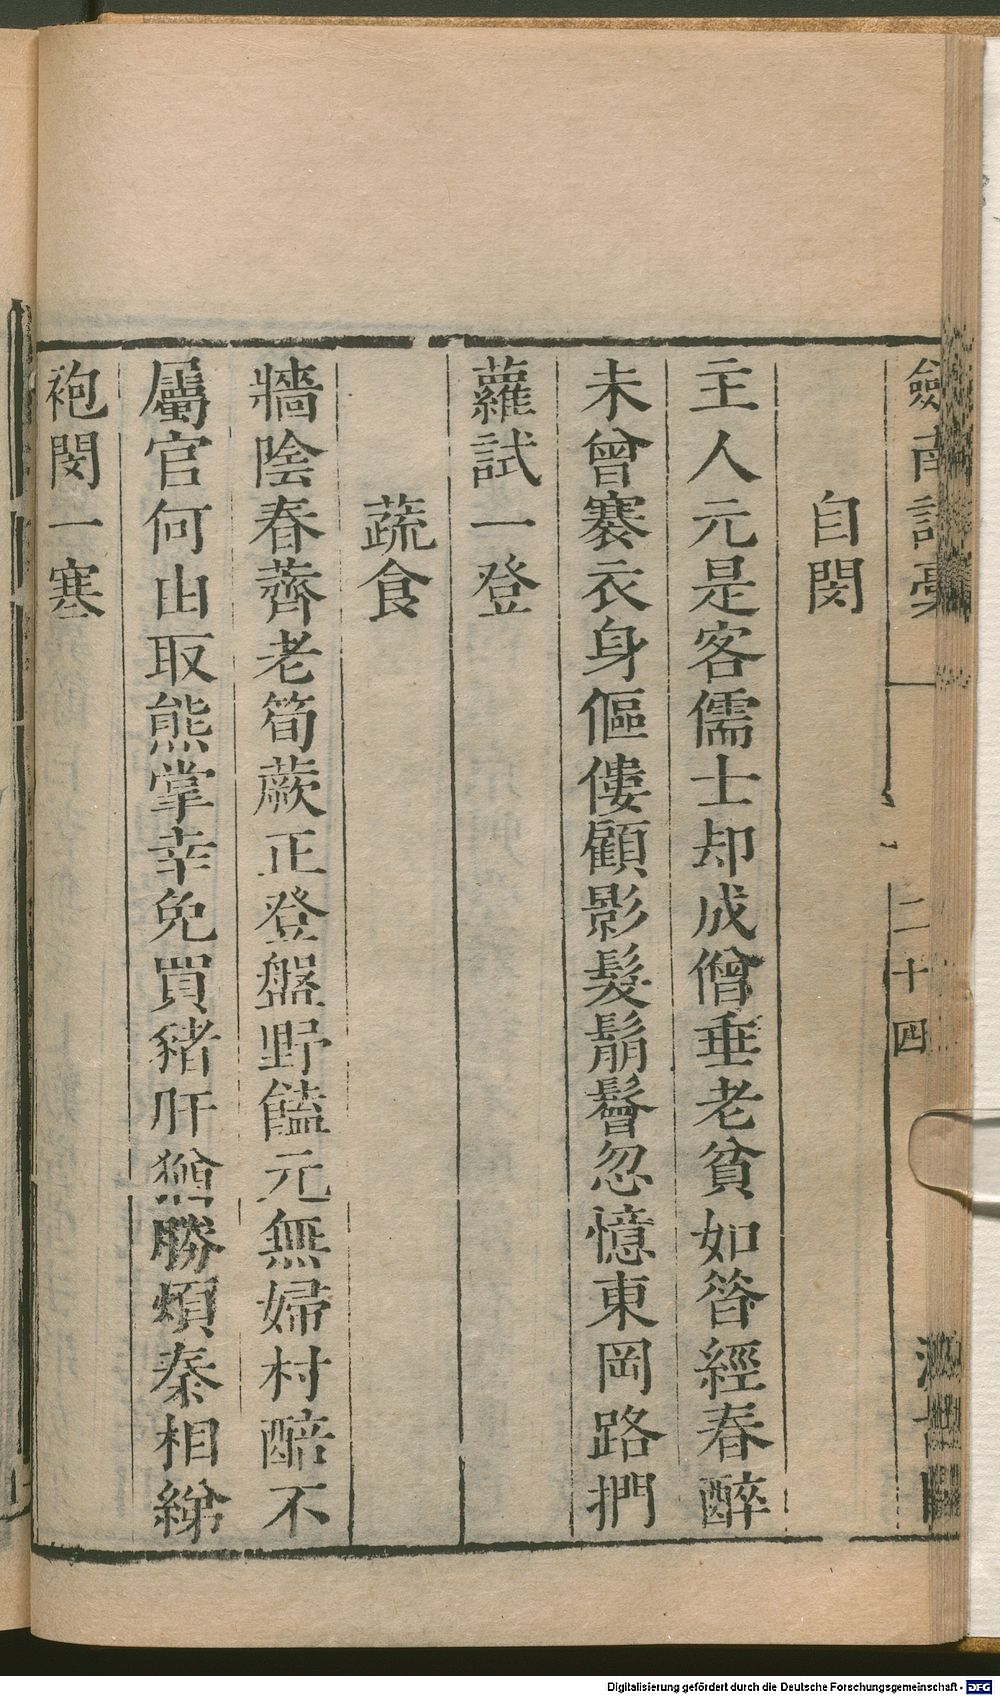 劍南詩稾
二十四
自閔
主人元是客儒士却成僧垂老貧如筨經春醉
未曾褰衣身傴僂顧影髮鬅鬙忽憶東岡路捫
蘿試一登
蔬食
牆陰春薺老筍蕨正登盤野饁元無婦村醅不
屬官何由取熊掌幸免買豬肝猶勝煩秦相綈
袍閔一寒
Digitalisierung gefördert durch die Deutsche Forschungsgemeinschaft - DFG